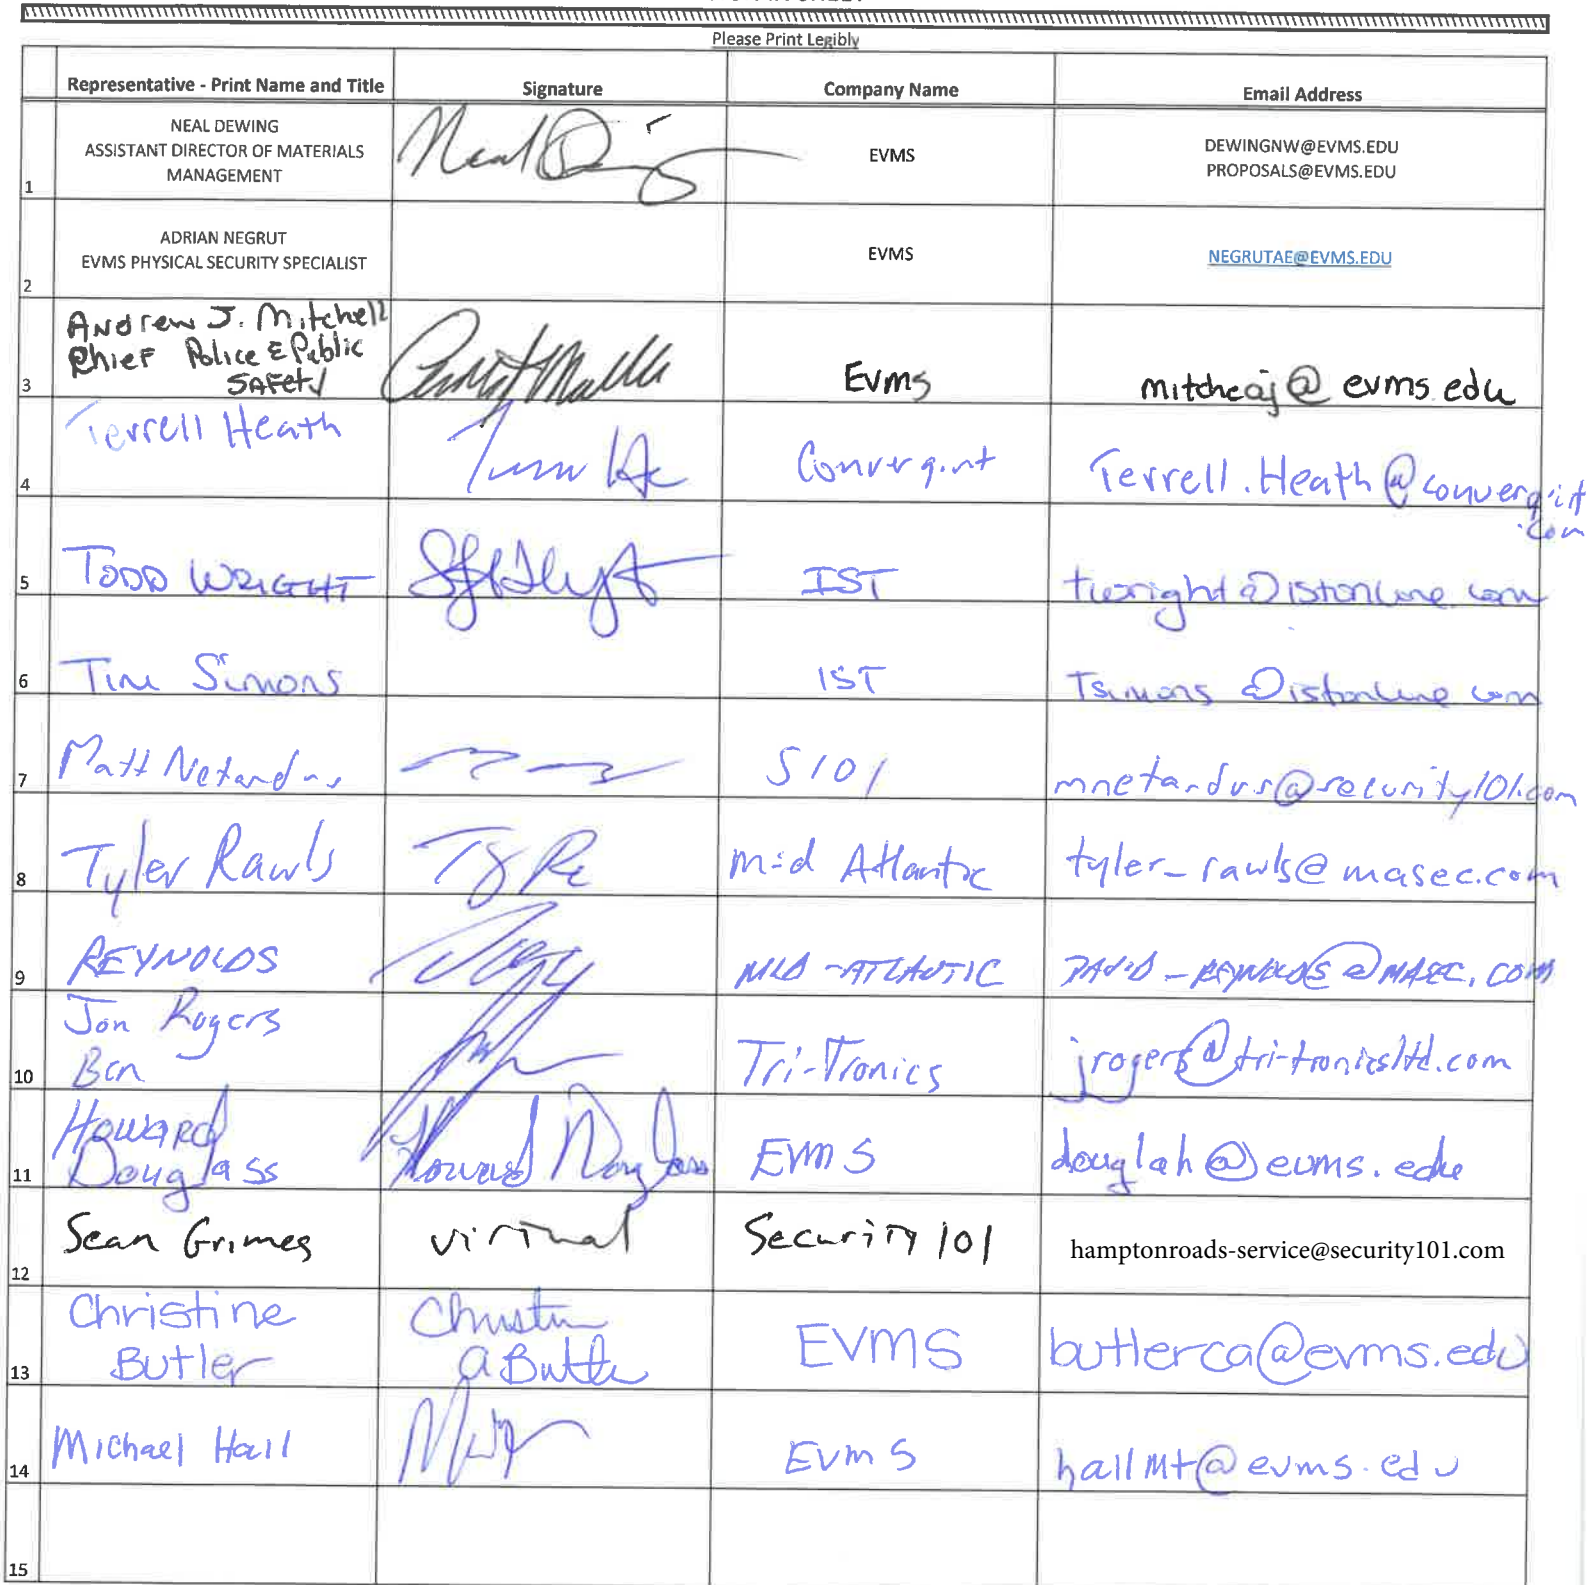 Please Print Legibly
Representative - Print Name and Title Signature Company Name Email Address
1 NEAL DEWING
ASSISTANT DIRECTOR OF MATERIALS
MANAGEMENT
Neal EVMS DEWINGNW@EVMS.EDU
PROPOSALS@EVMS.EDU
2 ADRIAN NEGRUT
EVMS PHYSICAL SECURITY SPECIALIST
EVMS NEGRUTAE@EVMS.EDU
3 Andrew J. Mitchell
Chief Police & Public
Safety
Evms mitcheaj@evms.edu
4 Terrell Heath Convergint Terrell.Heath@convergint
.com
5 TODD WRIGHT IST twright@istonline.com
6 Tim Simons IST Tsimons@istonline.com
7 Matt Netardus S101 mnetardus@security101.com
8 Tyler Rawls Mid Atlantic tyler_rawls@masec.com
9 REYNOLDS MID-ATLANTIC DAVID_REYNOLDS@MASEC.COM
10 Jon Rogers
Ben
Tri-Tronics jrogers@tri-tronicsltd.com
11 Howard
Douglass
Howard Douglass EVMS douglah@evms.edu
12 Sean Grimes virtual Security 101 hamptonroads-service@security101.com
13 Christine
Butler
Christine
A Butler
EVMS butlerca@evms.edu
14 Michael Hall EvmS hallmt@evms.edu
15